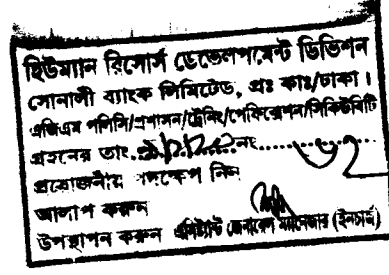 হিউম্যান রিসোর্স ডেভেলপমেন্ট ডিভিশন
সোনালী ব্যাংক লিমিটেড, প্রঃ কাঃ/ঢাকা।
এজিএম পলিসি/প্রশাসন/ট্রেনিং/পেনশন/সিকিউরিটি
গ্রহনের তাং..........নং..........
প্রয়োজনীয় পদক্ষেপ নিন
আলাপ করুন
উপস্থাপন করুন এসিষ্ট্যান্ট জেনারেল ম্যানেজার (ইনচার্জ)